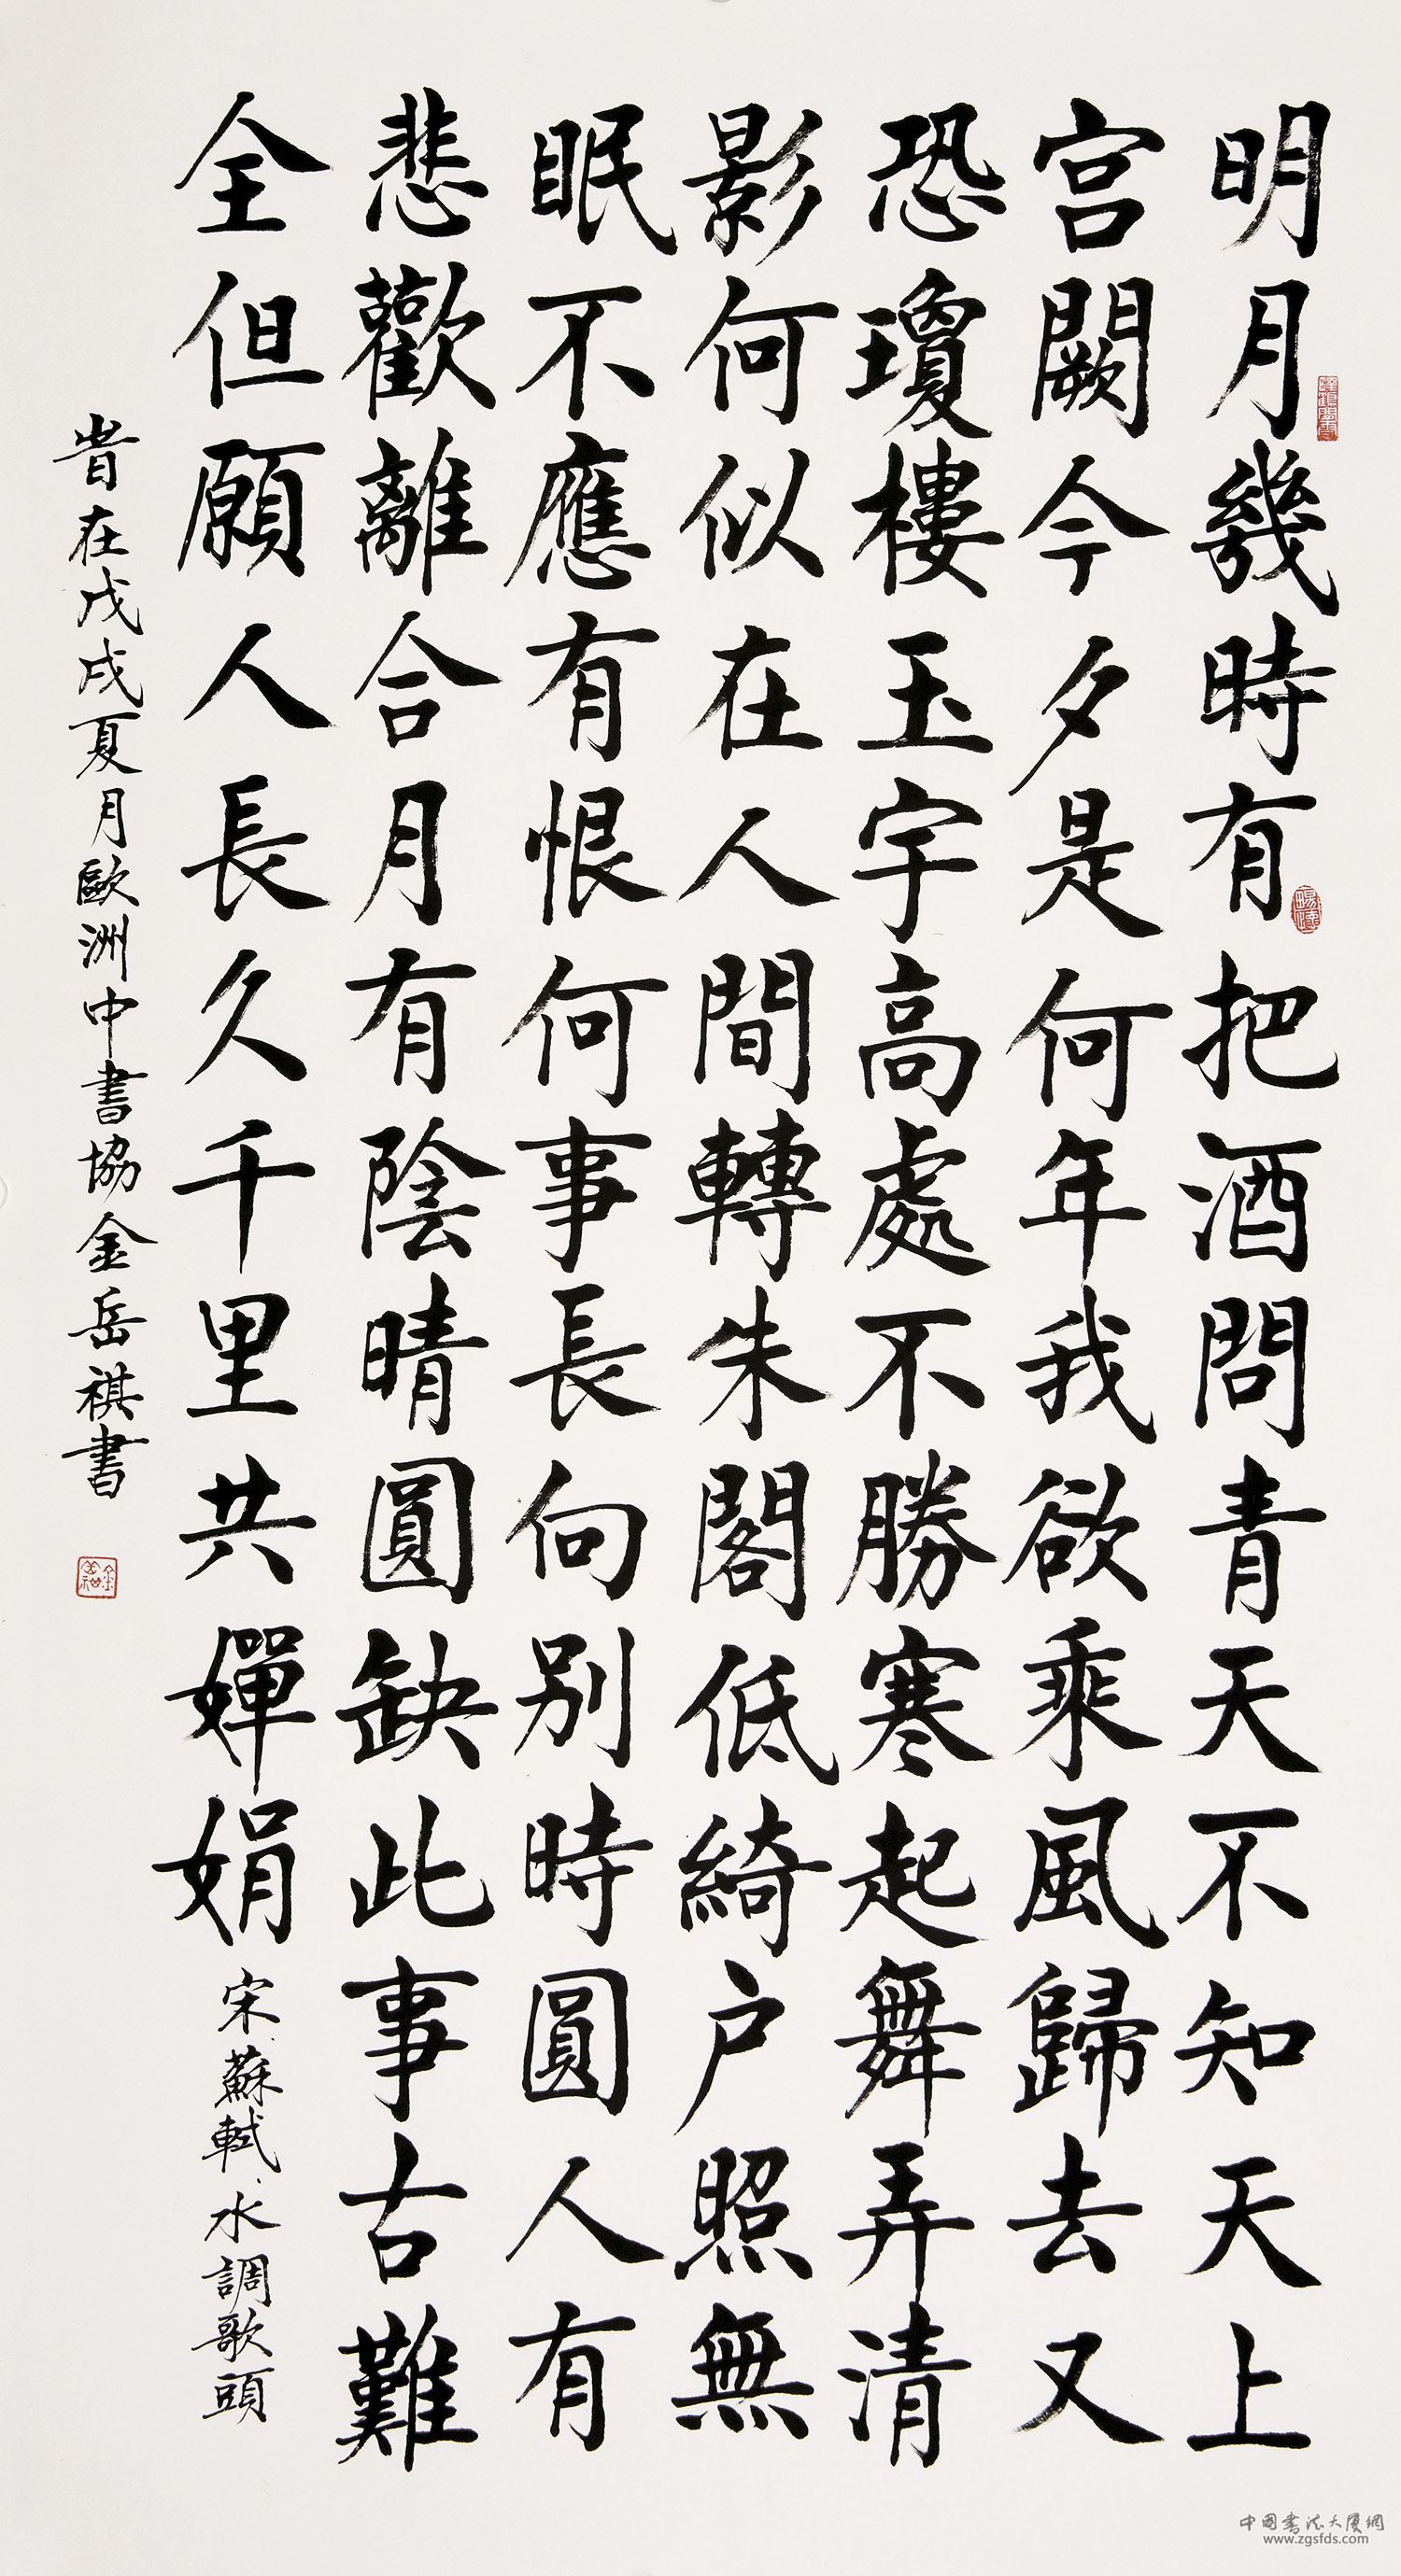 明月幾時有把酒問青天不知天上
宫闕今夕是何年我欲乘風歸去又
恐瓊樓玉宇高處不勝寒起舞弄清
影何似在人間轉朱閣低綺户照無
眠不應有恨何事長向别時圓人有
悲歡離合月有陰晴圓缺此事古難
全但願人長久千里共嬋娟 宋、蘇軾、水調歌頭
旹在戊戌夏月歐洲中書協金岳祺書
中國書法大厦網
www.zgsfds.com